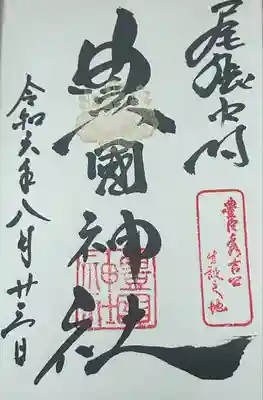 尾張中村
豊臣秀吉公
生誕之地
豊國神社
令和六年八月廿三日